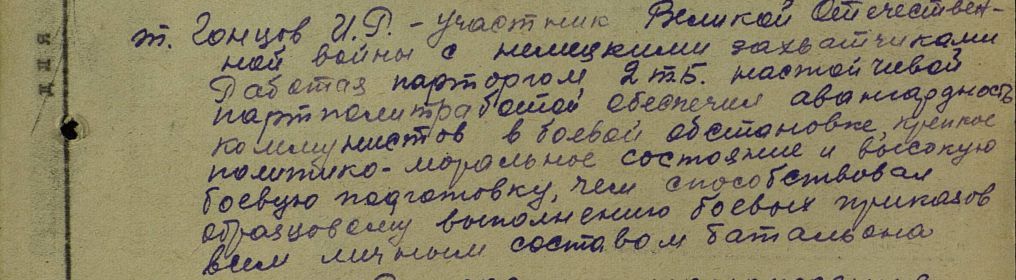 т. Гонцов И.Р. - участник Великой Отечествен-
ной войны с немецкими захватчиками
Работая парторгом 2 т.б. настойчивой
партполитработой обеспечил авангардность
коммунистов в боевой обстановке, крепкое
политико-моральное состояние и высокую
боевую подготовку, чем способствовал
образцовому выполнению боевых приказов
всем личным составом батальона